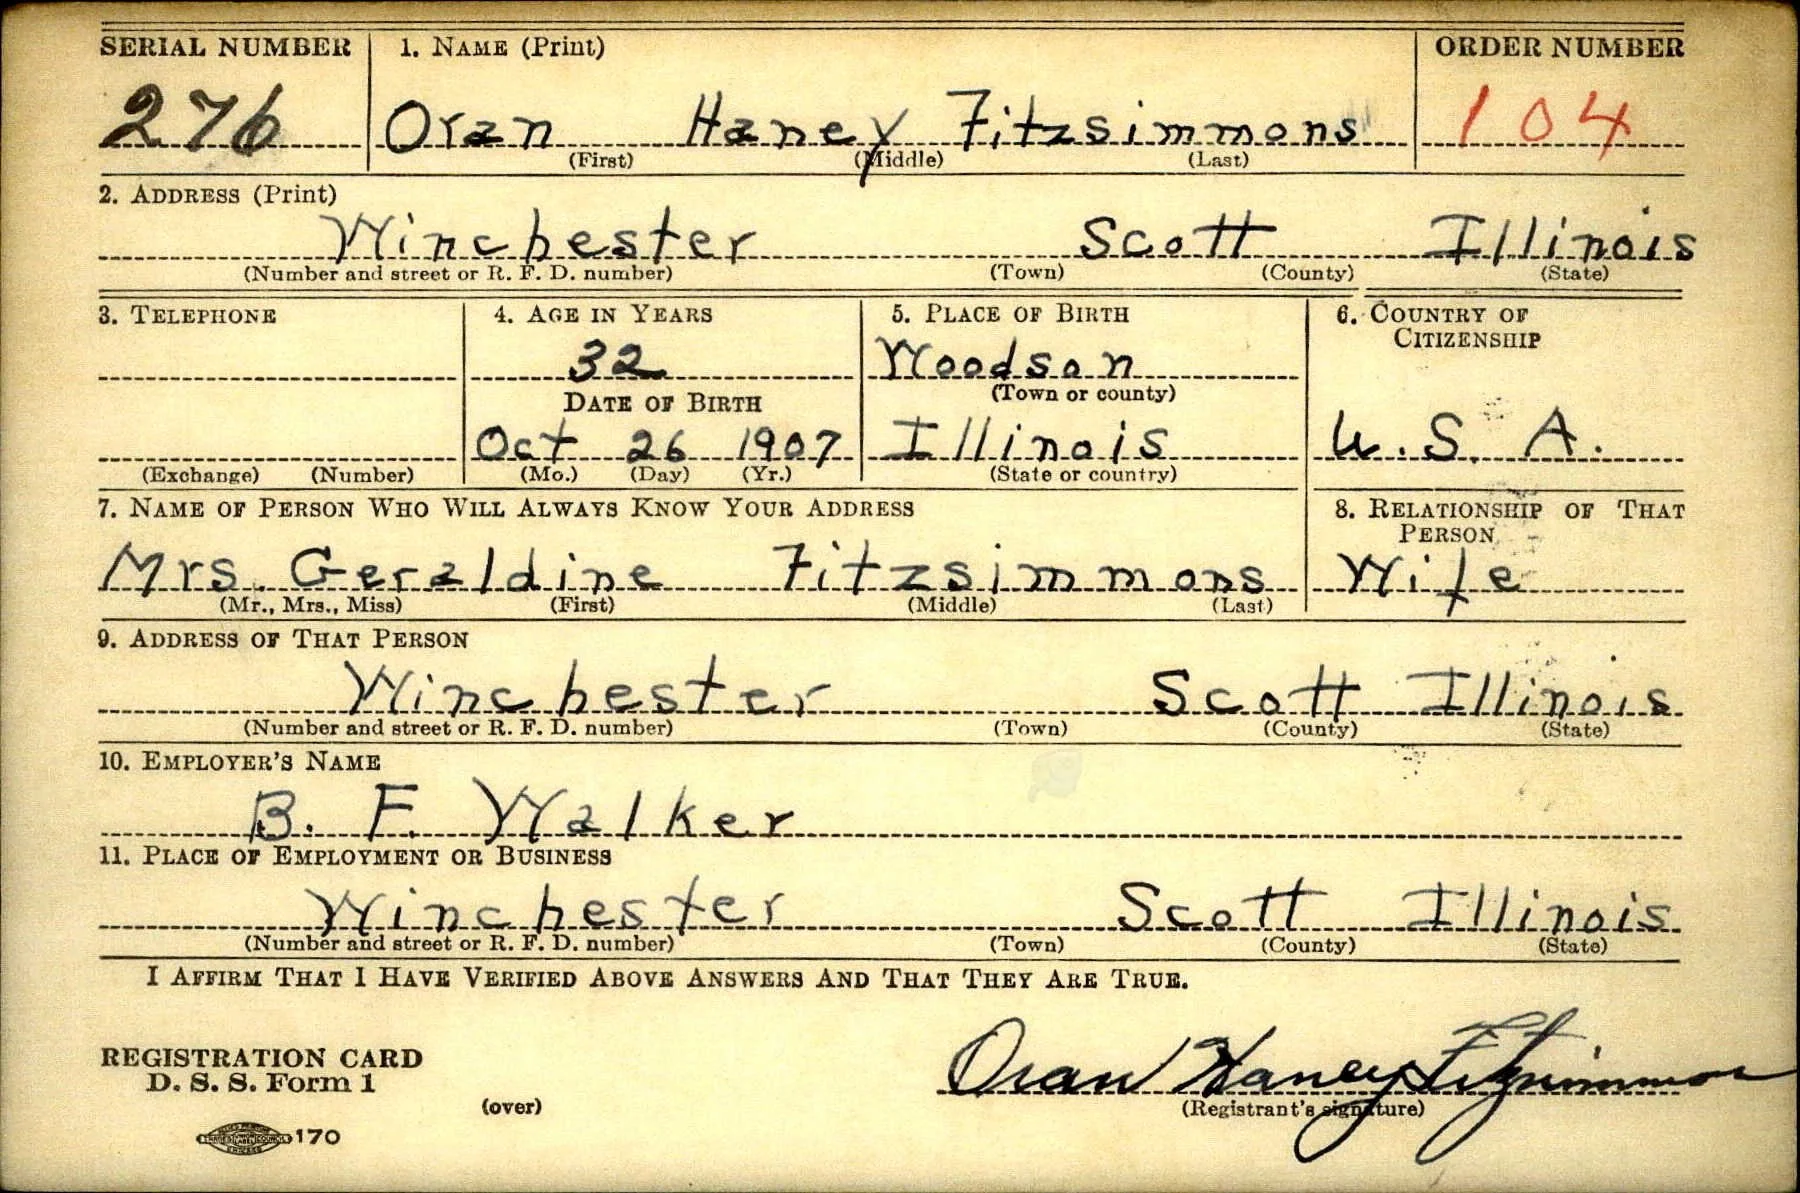 SERIAL NUMBER 1. NAME (Print) ORDER NUMBER
276 Oran Haney Fitzsimmons 104
(First) (Middle) (Last)
2. ADDRESS (Print)
Winchester Scott Illinois
(Number and street or R. F. D. number) (Town) (County) (State)
3. TELEPHONE 4. AGE IN YEARS 5. PLACE OF BIRTH 6. COUNTRY OF
CITIZENSHIP
32 Woodson
DATE OF BIRTH (Town or county)
Oct 26 1907 Illinois U. S. A.
(Exchange) (Number) (Mo.) (Day) (Yr.) (State or country)
7. NAME OF PERSON WHO WILL ALWAYS KNOW YOUR ADDRESS 8. RELATIONSHIP OF THAT
PERSON
Mrs. Geraldine Fitzsimmons Wife
(Mr., Mrs., Miss) (First) (Middle) (Last)
9. ADDRESS OF THAT PERSON
Winchester Scott Illinois
(Number and street or R. F. D. number) (Town) (County) (State)
10. EMPLOYER'S NAME
B. F. Walker
11. PLACE OF EMPLOYMENT OR BUSINESS
Winchester Scott Illinois
(Number and street or R. F. D. number) (Town) (County) (State)
I AFFIRM THAT I HAVE VERIFIED ABOVE ANSWERS AND THAT THEY ARE TRUE.
REGISTRATION CARD
D. S. S. Form 1
Oran Haney Fitzsimmons
(over) (Registrant's signature)
170